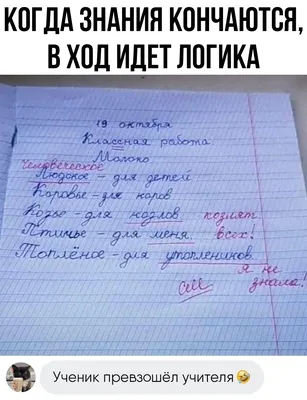 КОГДА ЗНАНИЯ КОНЧАЮТСЯ,
В ХОД ИДЕТ ЛОГИКА
19 октября
Классная работа
Молоко
Человеческое
Людское - для детей
Коровье - для коров
Козье - для козлов козлят
Птичье - для меня. всех!
Топлёное - для утопленников.
я не
знала!
см
Ученик превзошёл учителя🤣